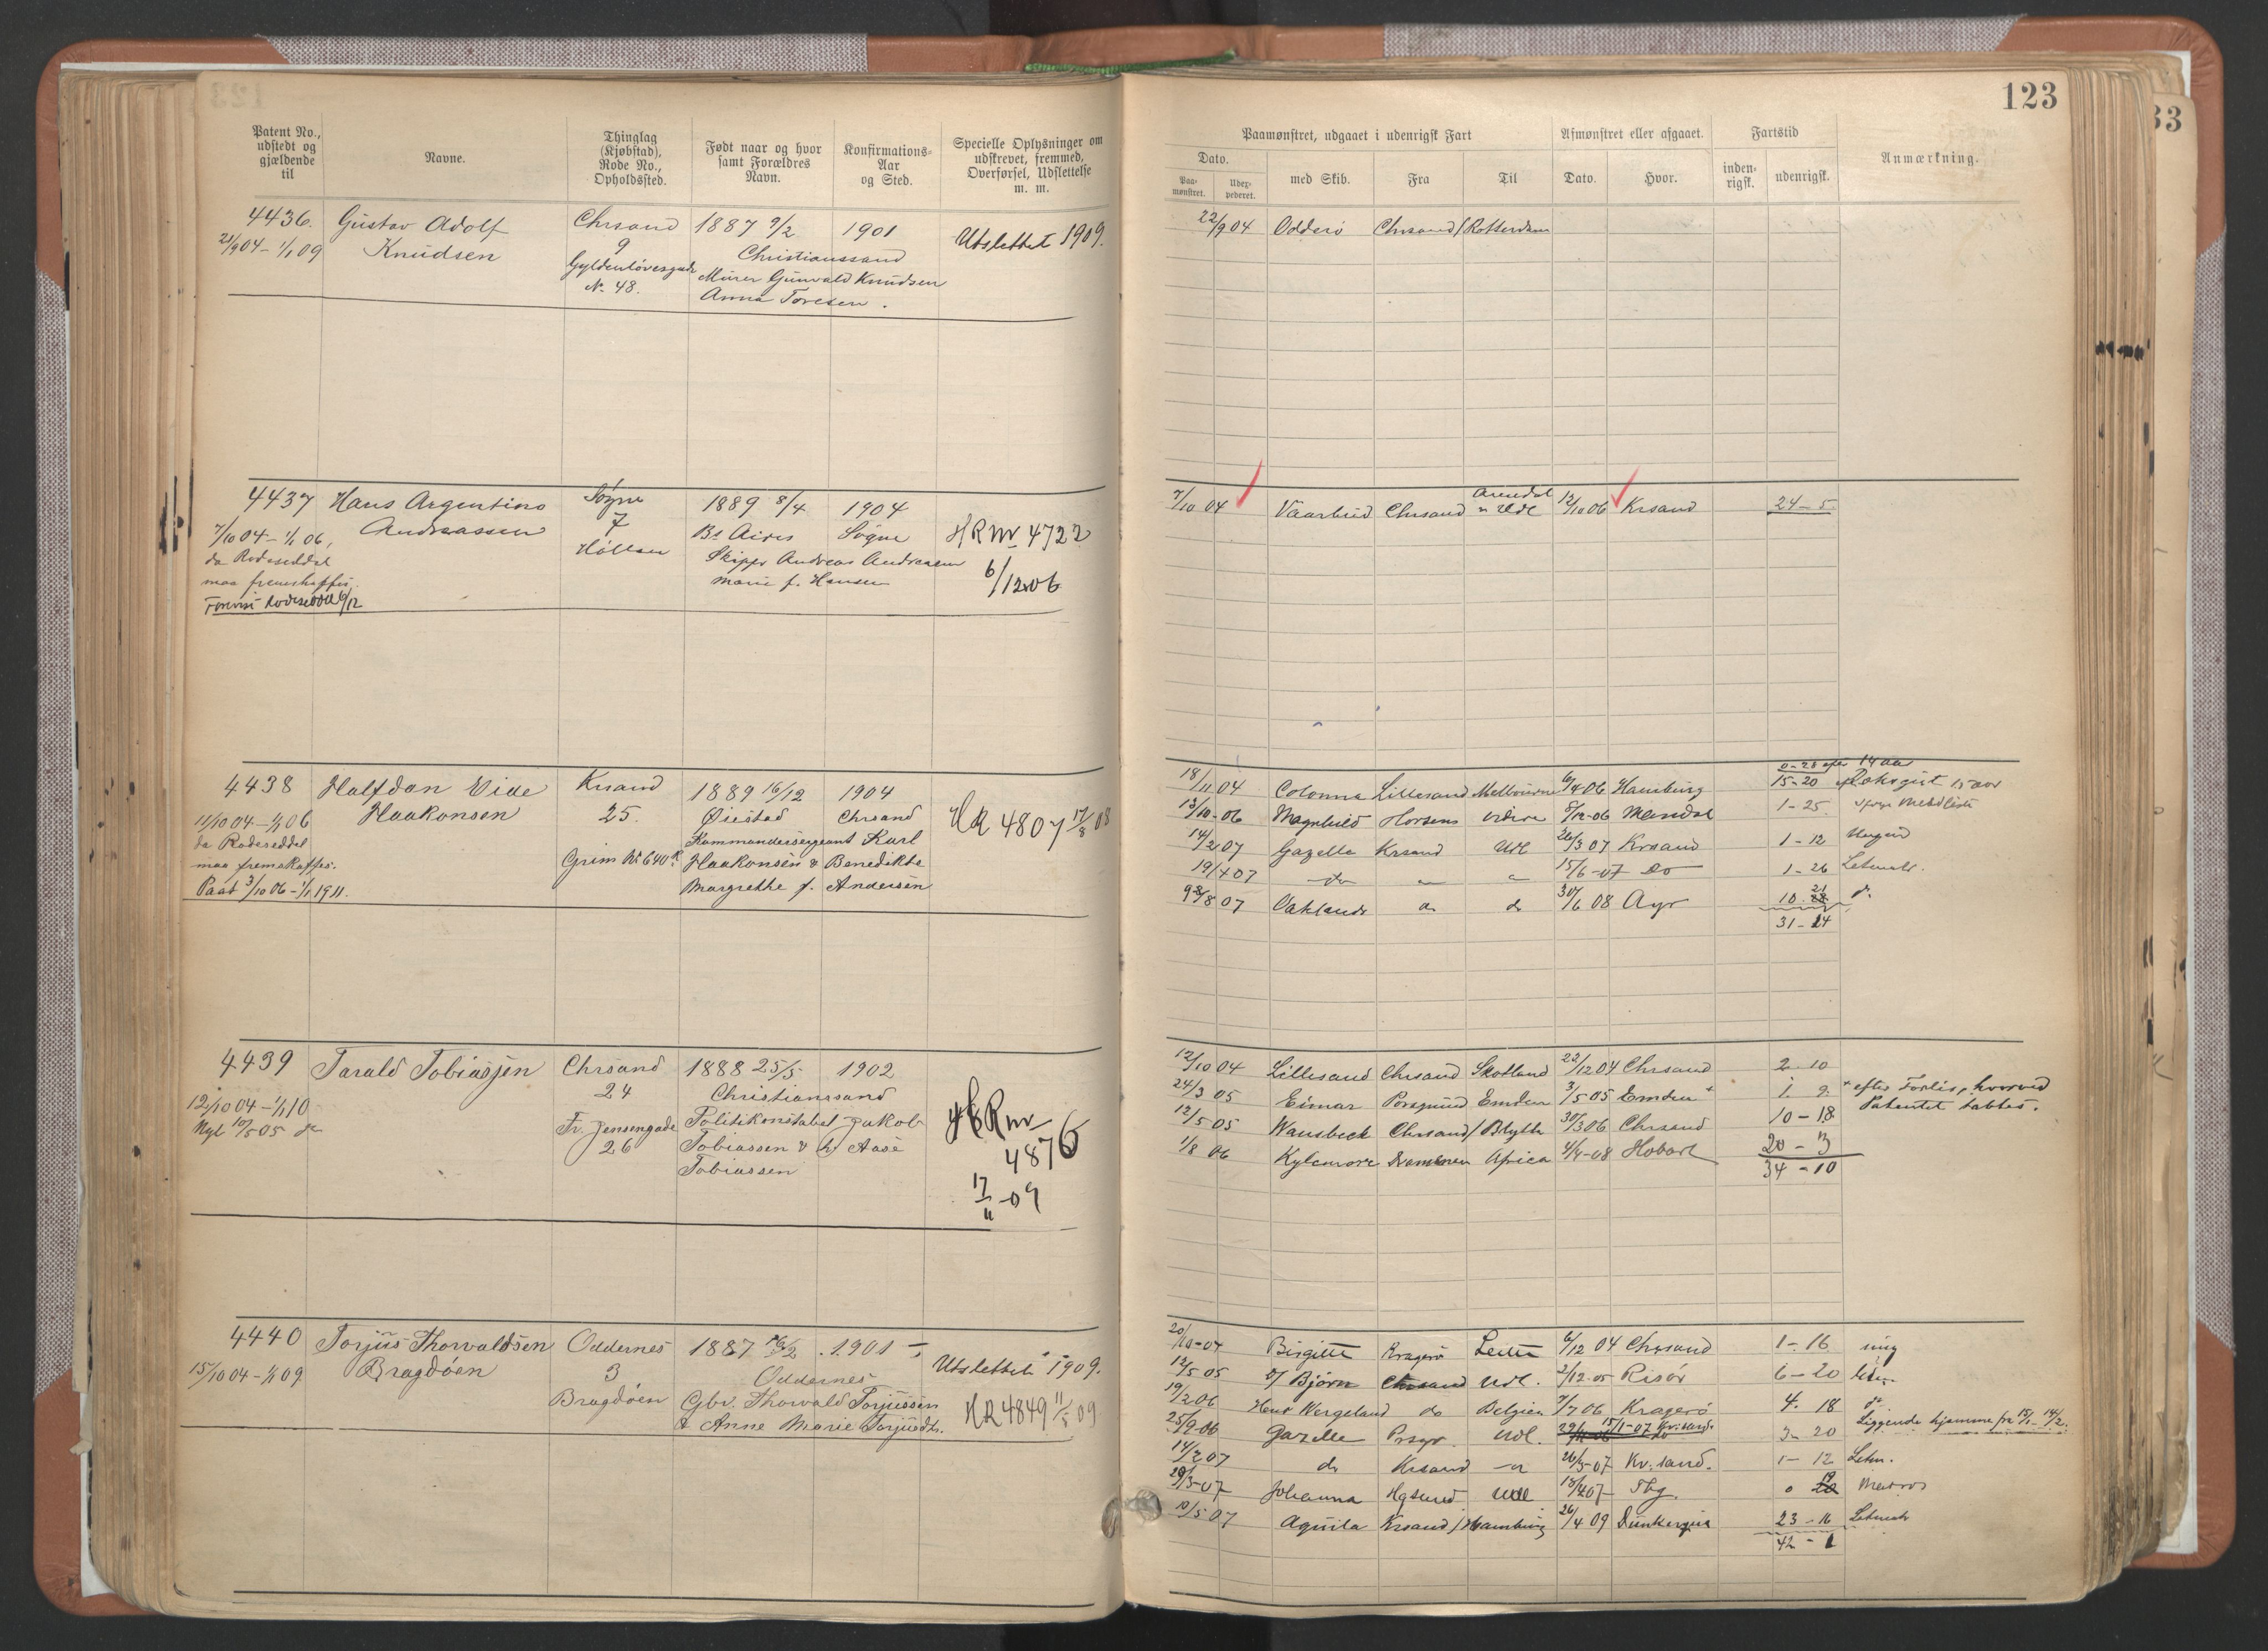 123
Patent No., udstedt og gjældende til
Navne.
Thinglag (Kjøbstad), Rode No., Opholdssted.
Født naar og hvor samt Forældres Navn.
Konfirmations-Aar og Sted.
Specielle Oplysninger om udskrevet, fremmed, Overførsel, Udslettelse m. m.
Paamønstret, udgaaet i udenrigsk Fart
Afmønstret eller afgaaet.
Fartstid
Anmærkning.
Dato.
Paa-mønstret.
med Skib.
Fra
Til
Dato.
Hvor.
inden-rigsk.
udenrigsk.
4436. Gustav Adolf Chrsand 1887 9/2 1901 Utslettet 1909.
21/9 04 - 1/1 09 Knudsen 9 Christianssand
Gyldenløvesgade Murer Gunvald Knudsen
No 48. Anna Toresen.
22/9 04 Odderø Chrsand / Rotterdam
4437 Hans Argentino Søgne 1889 8/4 1904
7/10 04 - 1/1 06, Andreassen 7 Bs Aires Søgne HRNr 4722
da Rodeseddel Høllen Skippr Andreas Andreasen
maa fremskaffes. Marie f. Hansen 6/12 06
Forevist Rodeseddel 6/12
7/10 04 Vaarbud Chrsand Arendal n Udl 12/10 06 Krsand 24 - 5
4438 Halfdan Vide Krsand 1889 16/12 1904
11/10 04 - 1/1 06 Haakonsen 25. Øiestad Chrsand HR 4807 17/8 08
da Rodeseddel Kommandersergeant Karl
maa fremskaffes. Grim No 640 Haakonsen & Benedikte
Paat 3/10 06 - 1/1 1911. Margrethe f. Andersen
0-28 efter 14 aar
18/11 04 Colonna Lillesand Melbourne 6/4 06 Hamburg 15-20 15 aar
13/10-06 Magnhild Horsens videre 8/12-06 Mandal 1-25
14/2 07 Gazella Krsand Udl 26/3 07 Krsand 1-12
19/4 07 do 15/6-07 Do 1-26 Letmatr.
8/8 07 Oaklands do do 30/6 08 Ayr 10 21 do
31-14
4439 Tarald Tobiassen Chrsand 1888 25/5 1902
12/10 04 - 1/1 10 24 Christianssand
Nyt 10/5 05 do Fr. Jensensgade Politikonstabel Jakob HRNr
26 Tobiassen & h/ Aase 4876
Tobiassen 17/11-09
12/10 04 Lillesand Chrsand Skotland 22/12 04 Chrsand 2-10
24/3 05 Eimar Porsgrund Emden 3/5 05 Emden + 1. 9. + efter Forlis, hvorved
12/5 05 Wansbeck Chrsand / Blyth 30/3 06 Chrsand 10-18 Patentet tabtes.
1/8 06 Kylemore Drammen Africa 4/4-08 Hobart 20-3
34-10
4440 Torjus Thorvaldsen Oddernes 1887 1901
15/10 04 - 1/1 09 Bragdøen 3 Oddernes Utslettet 1909.
Bragdøen Gbr. Thorvald Torjussen HR 4849 11/5 09
& Anne Marie Torjusdtr.
20/10-04 Birgitte Kragerø Leith 6/12 04 Chrsand 1-16 ung
12/5 05 D/ Bjørn Chrsand Udl. 2/12-05 Risør 6-20
19/2 06 Henr Wergeland do Belgien 7/7 06 Kragerø 4. 18 do
25/9-06 Gazella Prsgr. Udl. 15/1-07 Kr.sand. 3-20 Liggende hjemme fra 15/1-14/2.
14/2 07 do Krsand 26/3-07 Kr.sand. 1-12 Letm.
29/3-07 Johanna Udl 18/4 07 Tbg. 0 19 Matros
10/5 07 Aquila Krsand / Hamburg 26/4 09 Dunkerque 23-16 Letmatr
42-1